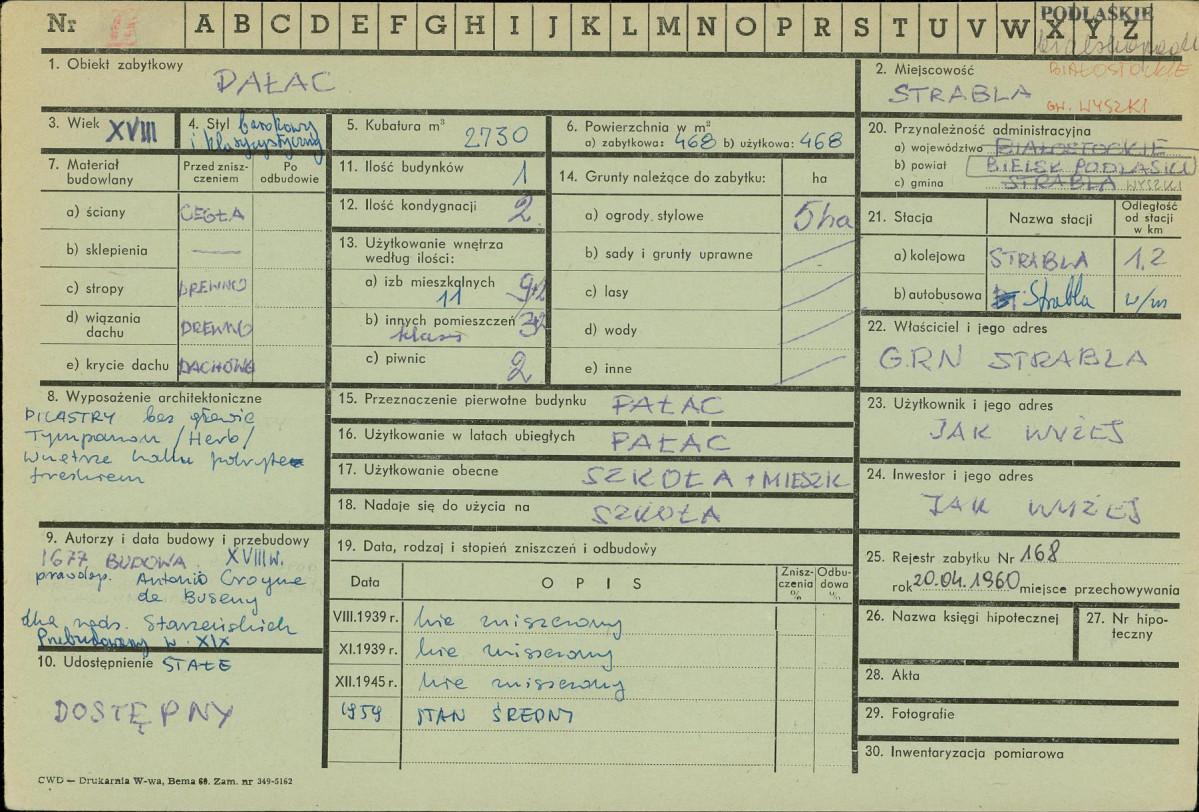 Nr A B C D E F G H I J K L M N O P R S T U V W X Y Z
PODLASKIE
1. Obiekt zabytkowy PAŁAC
2. Miejscowość BIAŁOSTOCKIE
STRABLA GW. WYSZKI
3. Wiek XVIII
4. Styl barokowy
i klasycystyczny
5. Kubatura m³ 2730
6. Powierzchnia w m²
a) zabytkowa: 468 b) użytkowa: 468
20. Przynależność administracyjna
a) województwo BIAŁOSTOCKIE
b) powiat BIELSK PODLASKI
c) gmina STRABLA WYSZKI
7. Materiał
budowlany
Przed znisz-
czeniem
Po
odbudowie
a) ściany CEGŁA
b) sklepienia —
c) stropy DREWNO
d) wiązania
dachu DREWNO
e) krycie dachu DACHÓWO
11. Ilość budynków 1
12. Ilość kondygnacji 2
13. Użytkowanie wnętrza
według ilości:
a) izb mieszkalnych 9+2
11
b) innych pomieszczeń 3+2
klasy
c) piwnic 2
14. Grunty należące do zabytku: ha
a) ogrody stylowe 5 ha
b) sady i grunty uprawne
c) lasy
d) wody
e) inne
21. Stacja Nazwa stacji Odległość
od stacji
w km
a) kolejowa STRABLA 1,2
b) autobusowa Strabla w/m
22. Właściciel i jego adres
G.R.N STRABLA
8. Wyposażenie architektoniczne
PILASTRY bez głowic
Tympanon /Herb/
Wnętrze hallu pokryte
freskiem
15. Przeznaczenie pierwotne budynku PAŁAC
16. Użytkowanie w latach ubiegłych PAŁAC
17. Użytkowanie obecne SZKOŁA + MIESZK
18. Nadaje się do użycia na SZKOŁA
23. Użytkownik i jego adres
JAK WYŻEJ
24. Inwestor i jego adres
JAK WYŻEJ
9. Autorzy i data budowy i przebudowy
1677 BUDOWA. XVIII w.
prawdop. Antonio Croyne
de Buseny
dla rodz. Starzeńskich
Przebudowany w XIX
10. Udostępnienie STAŁE
DOSTĘPNY
19. Data, rodzaj i stopień zniszczeń i odbudowy
Data OPIS Znisz-
czenia
% Odbu-
dowa
%
VIII.1939 r. nie zniszczony
XI.1939 r. nie zniszczony
XII.1945 r. nie zniszczony
1959 STAN ŚREDNI
25. Rejestr zabytku Nr 168
rok 20.04.1960 miejsce przechowywania
26. Nazwa księgi hipotecznej
27. Nr hipo-
teczny
28. Akta
29. Fotografie
30. Inwentaryzacja pomiarowa
CWD — Drukarnia W-wa, Bema 60. Zam. nr 349-5162